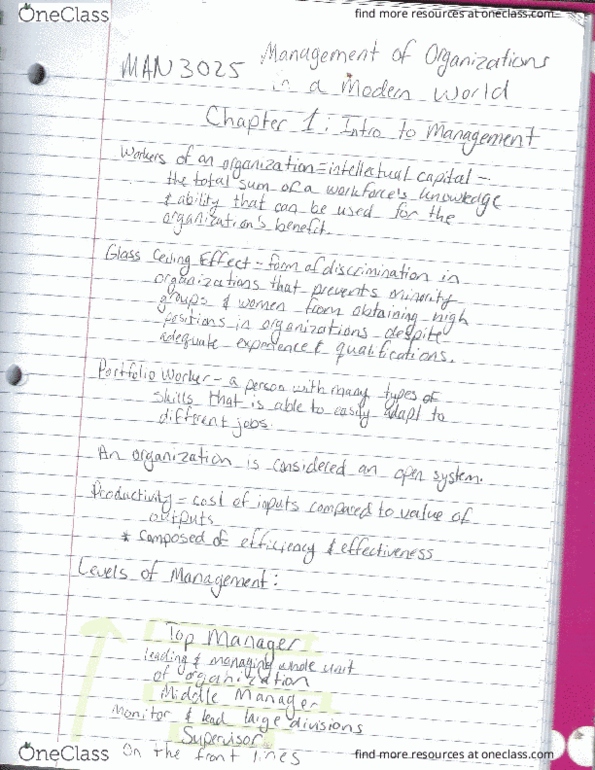 OneClass
find more resources at oneclass.com
MAN 3025 Management of Organizations
in a Modern World
Chapter 1: Intro to Management
Workers of an organization = intellectual capital -
the total sum of a workforce's knowledge
& ability that can be used for the
organization's benefit.
Glass Ceiling Effect - form of discrimination in
organizations that prevents minority
groups & women from obtaining high
positions in organizations despite
adequate experience & qualifications.
Portfolio Worker - a person with many types of
skills that is able to easily adapt to
different jobs.
An organization is considered an open system.
Productivity - cost of inputs compared to value of
outputs
* composed of efficiency & effectiveness
Levels of Management:
Top Manager
leading & managing whole unit
of organization
Middle Manager
Monitor & lead large divisions
Supervisor
on the front lines
OneClass
find more resources at oneclass.com